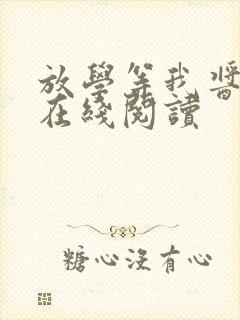 放學等我 醬
在綫閱讀
糖心沒有心